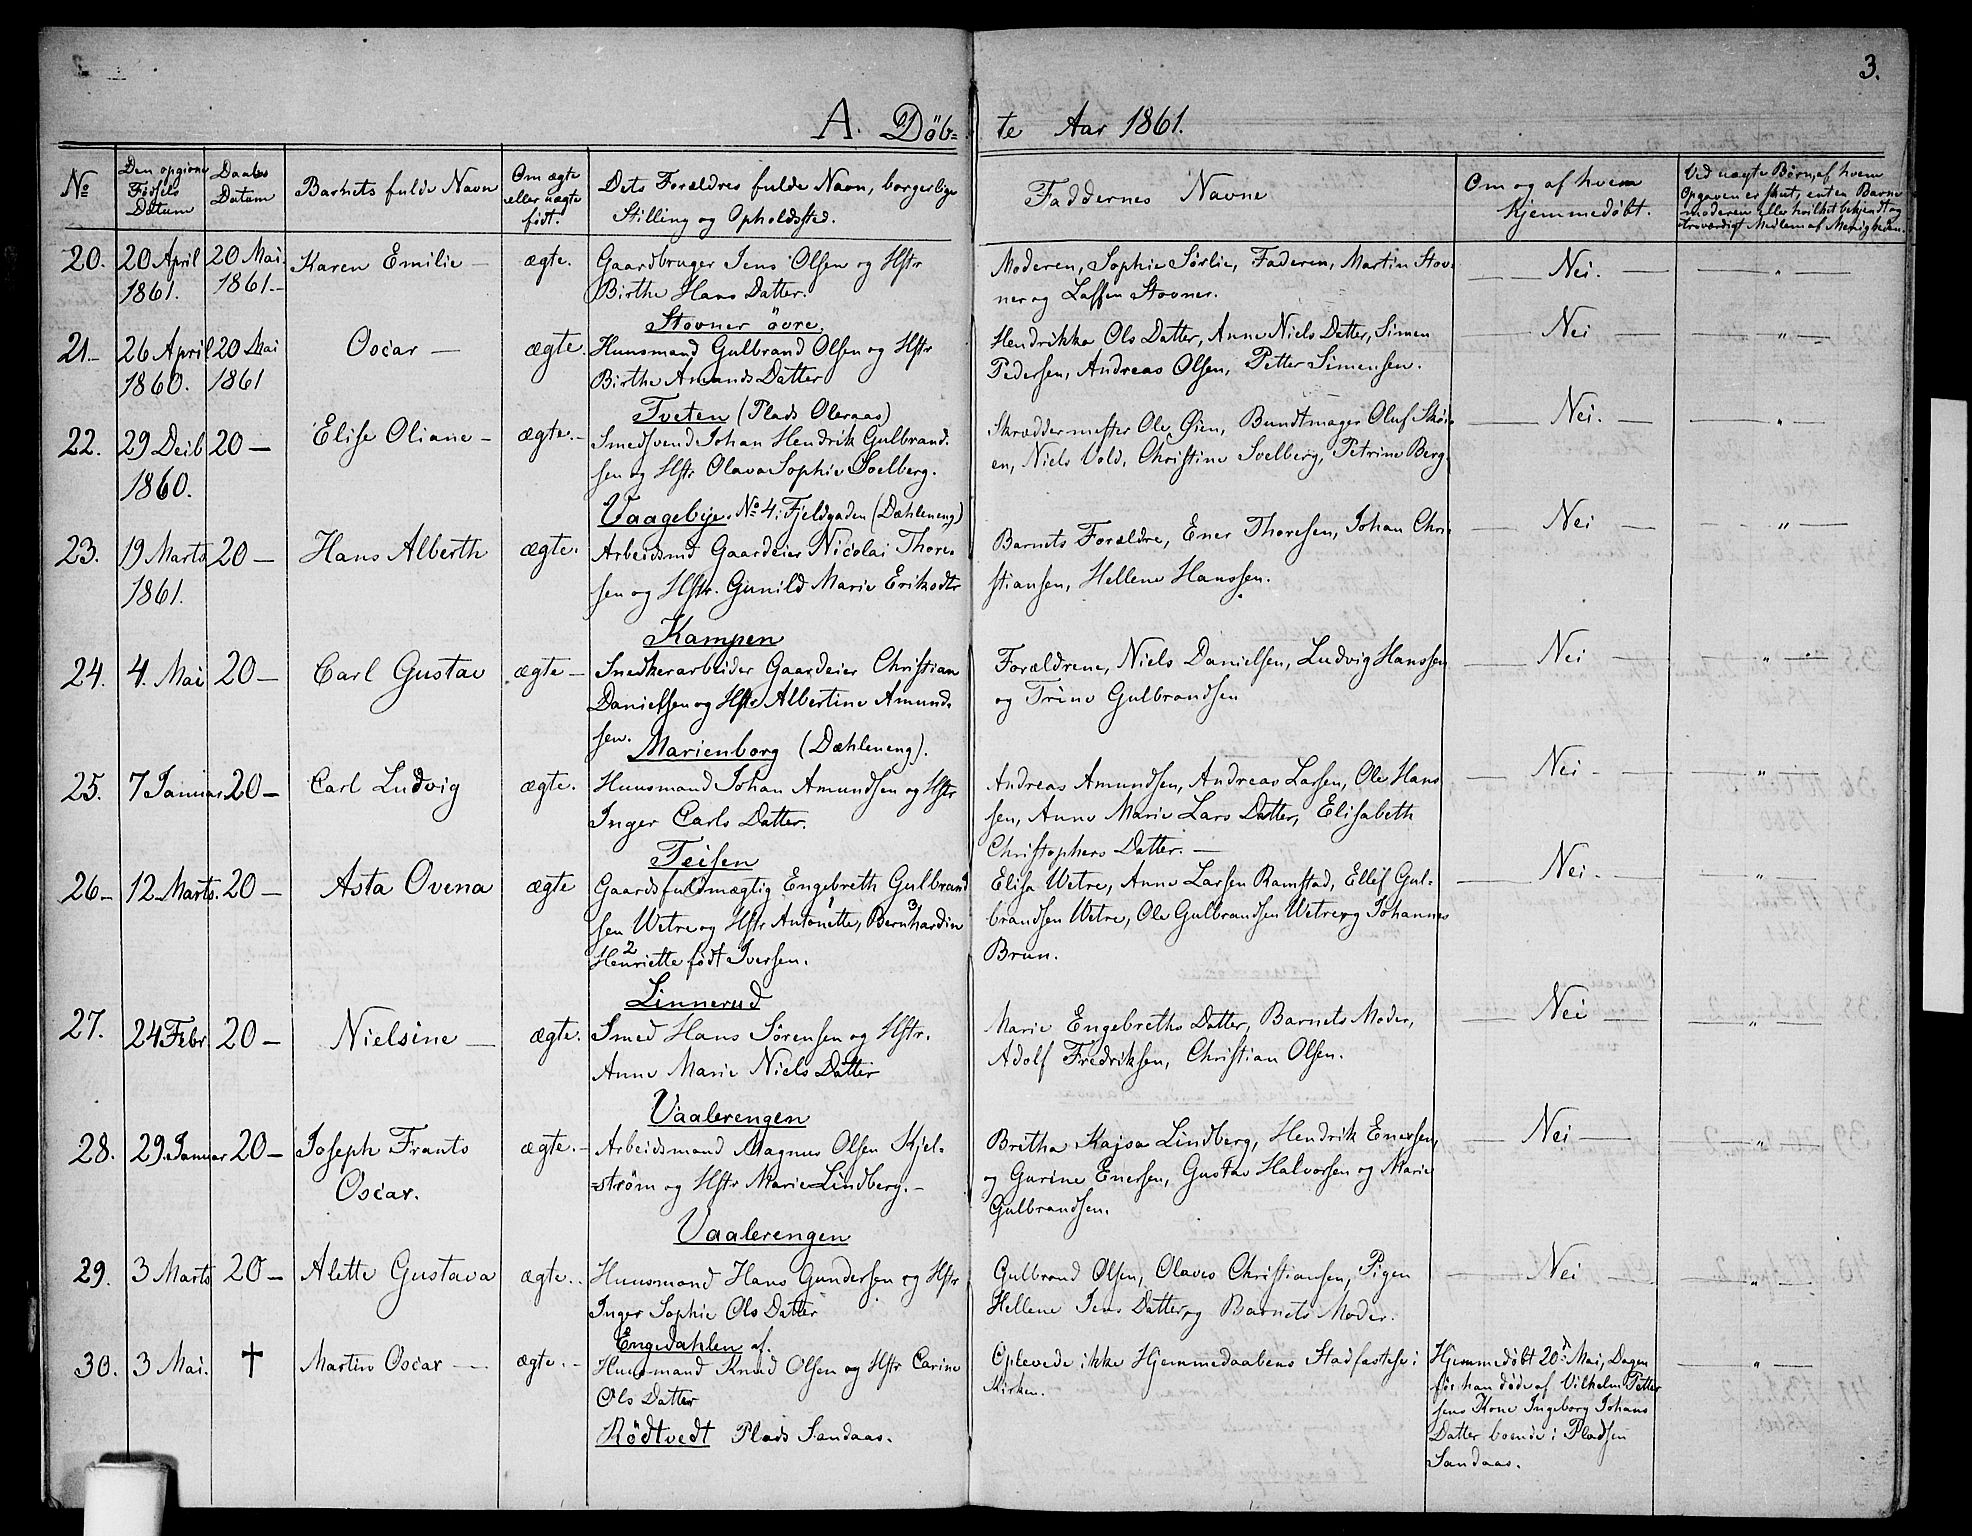 3.
A. Döb= te Aar 1861.
№ | Den opgivne Fødsels Datum | Daabs Datum | Barnets fulde Navn | Om ægte eller uægte født. | Dets Forældres fulde Navn, borgerlige Stilling og Opholdsted. | Faddernes Navne | Om og af hvem hjemmedøbt. | Ved uægte Børn, af hvem Opgaven er skeet, enten Barnemoderen eller hvilket bekjendt og troværdigt Medlem af Menigheden.
20. 20 April 1861. 20 Mai 1861.- Karen Emilie - ægte. Gaardbruger Jens Olsen og Hstr
Birthe Hans Datter.
Stovner övre.
Moderen, Sophie Sørlie, Faderen, Martin Stov-
ner og Laffen Stovner.
Nei. "
21- 26 April 1860. 20 Mai 1861 Oscar - ægte. Huusmand Gulbrand Olsen og Hstr
Birthe Amunds Datter
Tveten (Plads Oleraas)
Hendrikke Ols Datter, Anne Niels Datter, Simen
Pedersen, Andreas Olsen, Petter Simensen.
Nei "
22. 29 Deib 1860. 20- Elise Oliane - ægte.- Smedsvend Johan Hendrik Gulbrand-
sen og Hstr Olava Sophie Soelberg.
Vaagebye. № 4. Fjeldgaden (Dæhleneng)
Skræddermester Ole Øien, Bundtmager Oluf Skøi-
en, Niels Vold, Christine Soelberg, Petrine Berg
Nei. "
23. 19 Marts 1861. 20- Hans Alberth ægte. Arbeidsmd Gaardeier Nicolai Thore-
sen og Hstr. Gunild Marie Eriksdtr
Kampen
Barnets Forældre, Ener Thoresen, Johan Chri-
stiansen, Hellene Hanssen.
Nei "
24. 4. Mai 20- Carl Gustav ægte- Snedkerarbeider Gaardeier Christian
Danielsen og Hstr Albertine Amund-
sen. Marienborg (Dæhleneng).
Forældrene, Niels Danielsen, Ludvig Hanssen
og Trine Gulbrandsen
Nei "
25. 7 Januar 20- Carl Ludvig ægte. Huusmand Johan Amundsen og Hstr
Inger Carls Datter.
Teisen
Andreas Amundsen, Andreas Larsen, Ole Hans
sen, Anne Marie Lars Datter, Elisabeth
Christophers Datter. -
Nei - "
26- 12 Marts. 20- Asta Ovena ægte Gaardsfuldmægtig Engebreth Gulbrand
sen Wetre og Hstr Antonette,1 Bernhardin3
Henriette2 født Iversen.
Linnerud
Elisa Wetre, Anne Larsen Ramstad, Ellef Gul-
brandsen Wetre, Ole Gulbrandsen Wetre og Johannes
Brun.
Nei. "
27. 24 Febr 20- Nielsine - ægte. Smed Hans Sørensen og Hstr.
Anne Marie Niels Datter
Vaalerengen
Marie Engebreths Datter, Barnets Moder,
Adolf Fredriksen, Christian Olsen.
Nei "
28. 29 Januar 20- Joseph Frants
Oscar. ægte.- Arbeidsmand Magnus Olsen Kjel-
=strøm og Hstr Marie Lindberg.-
Vaalerengen
Britha Kajsa Lindberg, Hendrik Enersen,
og Gurine Enersen, Gustav Halvorsen og Marie
Gulbrandsen.
Nei "
29. 3 Marts 20- Alette Gustava ægte.. Huusmand Hans Gundersen og Hstr
Inger Sophie Ols Datter
Engedahlen af.
Gulbrand Olsen, Olaves Christiansen, Pigen
Hellene Jens Datter og Barnets Moder.
Nei "
30. 3 Mai. † Martin Oscar - ægte.- Huusmand Knud Olsen og Hstr Carine
Ols Datter
Rödtvedt Plads Sandaas.
Oplevede ikke Hjemmedaabens Stadfæstelse i
Kirken.
Hjemmedøbt 20de Mai, Dagen
før han døde af Vilhelm Petter
sens Kone Ingeborg Johans
Datter boende i Pladsen
Sandaas.
"